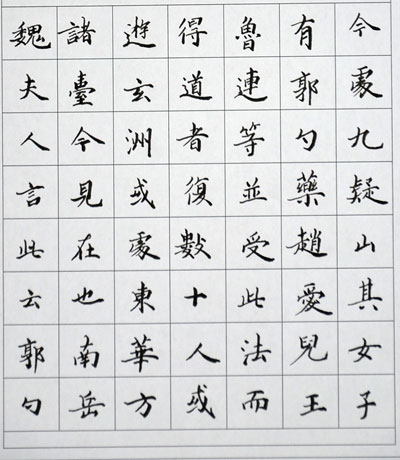 今處九疑山其女子
有郭勺藥趙愛兒王
魯連等並受此法而
得道者復數十人或
遊玄洲或處東華方
諸臺今見在也南岳
魏夫人言此云郭勺